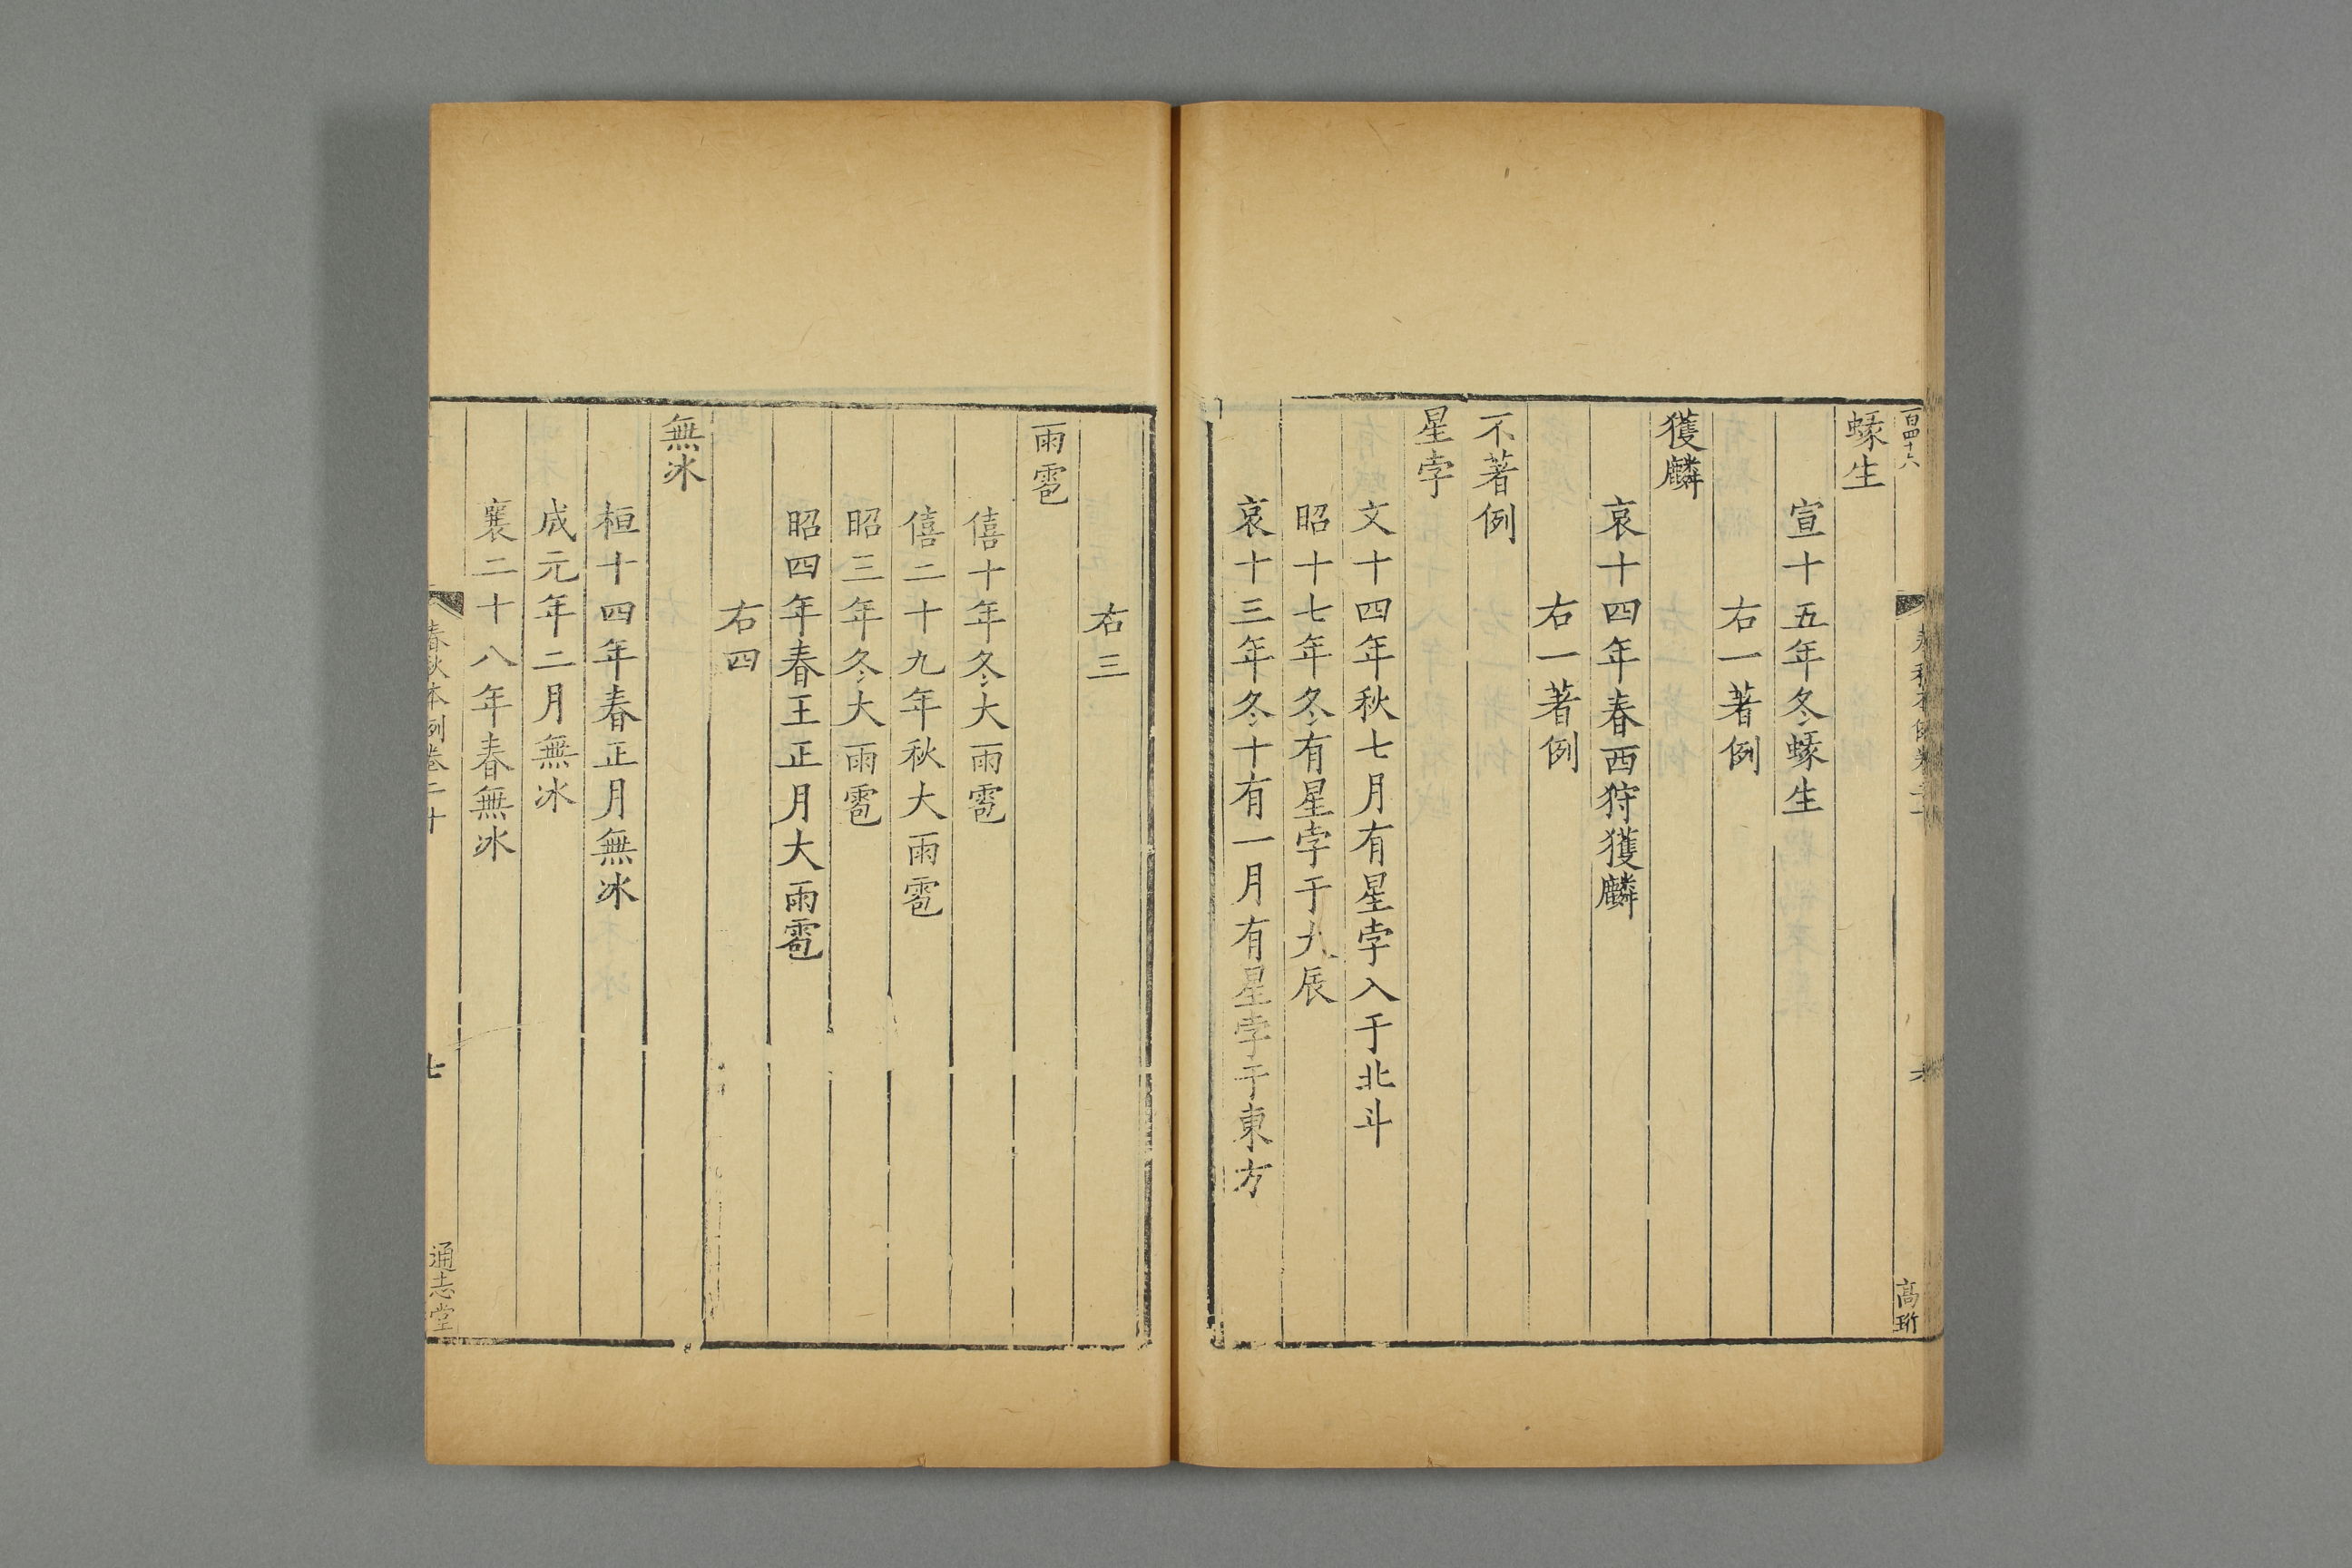 百四十六
高珩
蝝生
宣十五年冬蝝生
右一著例
獲麟
哀十四年春西狩獲麟
右一著例
不著例
星孛
文十四年秋七月有星孛入于北斗
昭十七年冬有星孛于大辰
哀十三年冬十有一月有星孛于東方
右三
雨雹
僖十年冬大雨雹
僖二十九年秋大雨雹
昭三年冬大雨雹
昭四年春王正月大雨雹
右四
無冰
桓十四年春正月無冰
成元年二月無冰
襄二十八年春無冰
春秋本例卷二十
七
通志堂